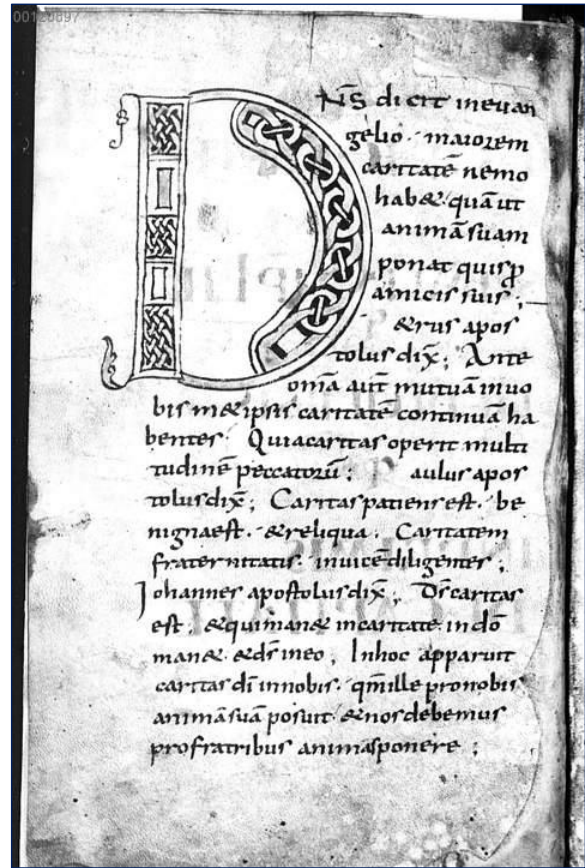 00120897
DN̄S dicit in euan
gelio · maiorem
caritatē nemo
hab& · quā ut
animā suam
ponat quis ꝓ
amicis suis ;
&rus apos
tolus dix̄ ; Ante
om̄ia aut̄ mutuā in uo
bis m&ipsis caritatē continuā ha
bentes · Quia caritas operit multi
tudinē peccatorū ; aulus apos
tolus dix̄ ; Caritas patiens est · be
nigna est · & reliqua · Caritatem
fraternitatis · inuicē diligentes ;
Iohannes apostolus dix̄ ; D̄s caritas
est · & qui man& in caritate · in dō
man& · & d̄s in eo ; In hoc apparuit
caritas dī in nobis · qm̄ ille pro nobis
animā suā posuit · & nos debemus
pro fratribus animas ponere ;